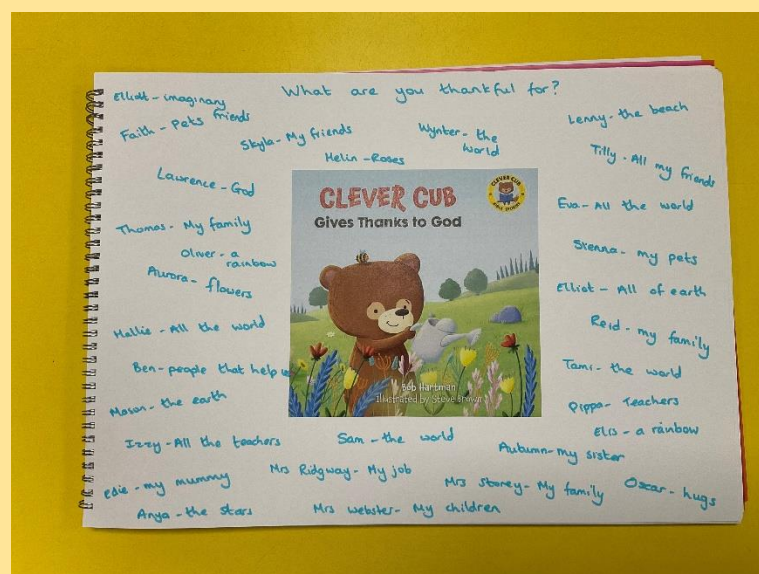 What are you thankful for?
Elliott - imaginary
friends
Faith - Pets
Skyla - My friends
Wynter - the
world
Lenny - the beach
Helin - Roses
Tilly - All my friends
Lawrence - God
Thomas - My family
Oliver - a
rainbow
Aurora - flowers
Hallie - All the world
Ben - people that help us
Mason - the earth
Izzy - All the teachers
Edie - my mummy
Anya - the stars
CLEVER CUB
Gives Thanks to God
CLEVER CUB
BIBLE STORIES
Bob Hartman
Illustrated by Steve Brown
Eva - All the world
Sienna - my pets
Elliot - All of earth
Reid - my family
Tami - the world
Pippa - Teachers
Elis - a rainbow
Sam - the world
Autumn - my sister
Mrs Ridgway - My job
Mrs Storey - My family
Oscar - hugs
Mrs Webster - My children